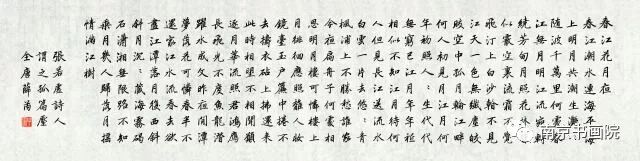 春江花月夜
春江潮水連海平海
上明月共潮生灩灩
隨波千萬里何處春
江無月明江流宛轉
繞芳甸月照花林皆
似霰空裏流霜不覺
飛汀上白沙看不見
江天一色無纖塵皎
皎空中孤月輪江畔
何人初見月江月何
年初照人人生代代
無窮已江月年年望
相似不知江月待何
人但見長江送流水
白雲一片去悠悠青
楓浦上不勝愁誰家
今夜扁舟子何處相
思明月樓可憐樓上
月徘徊應照離人妝
鏡臺玉戶簾中捲不
去擣衣砧上拂還來
此時相望不相聞願
逐月華流照君鴻雁
長飛光不度魚龍潛
躍水成文昨夜閒潭
夢落花可憐春半不
還家江水流春去欲
盡江潭落月復西斜
斜月沉沉藏海霧碣
石瀟湘無限路不知
乘月幾人歸落月搖
情滿江樹
張若虛詩人
謂之孤篇壓
全唐薛
南京书画院